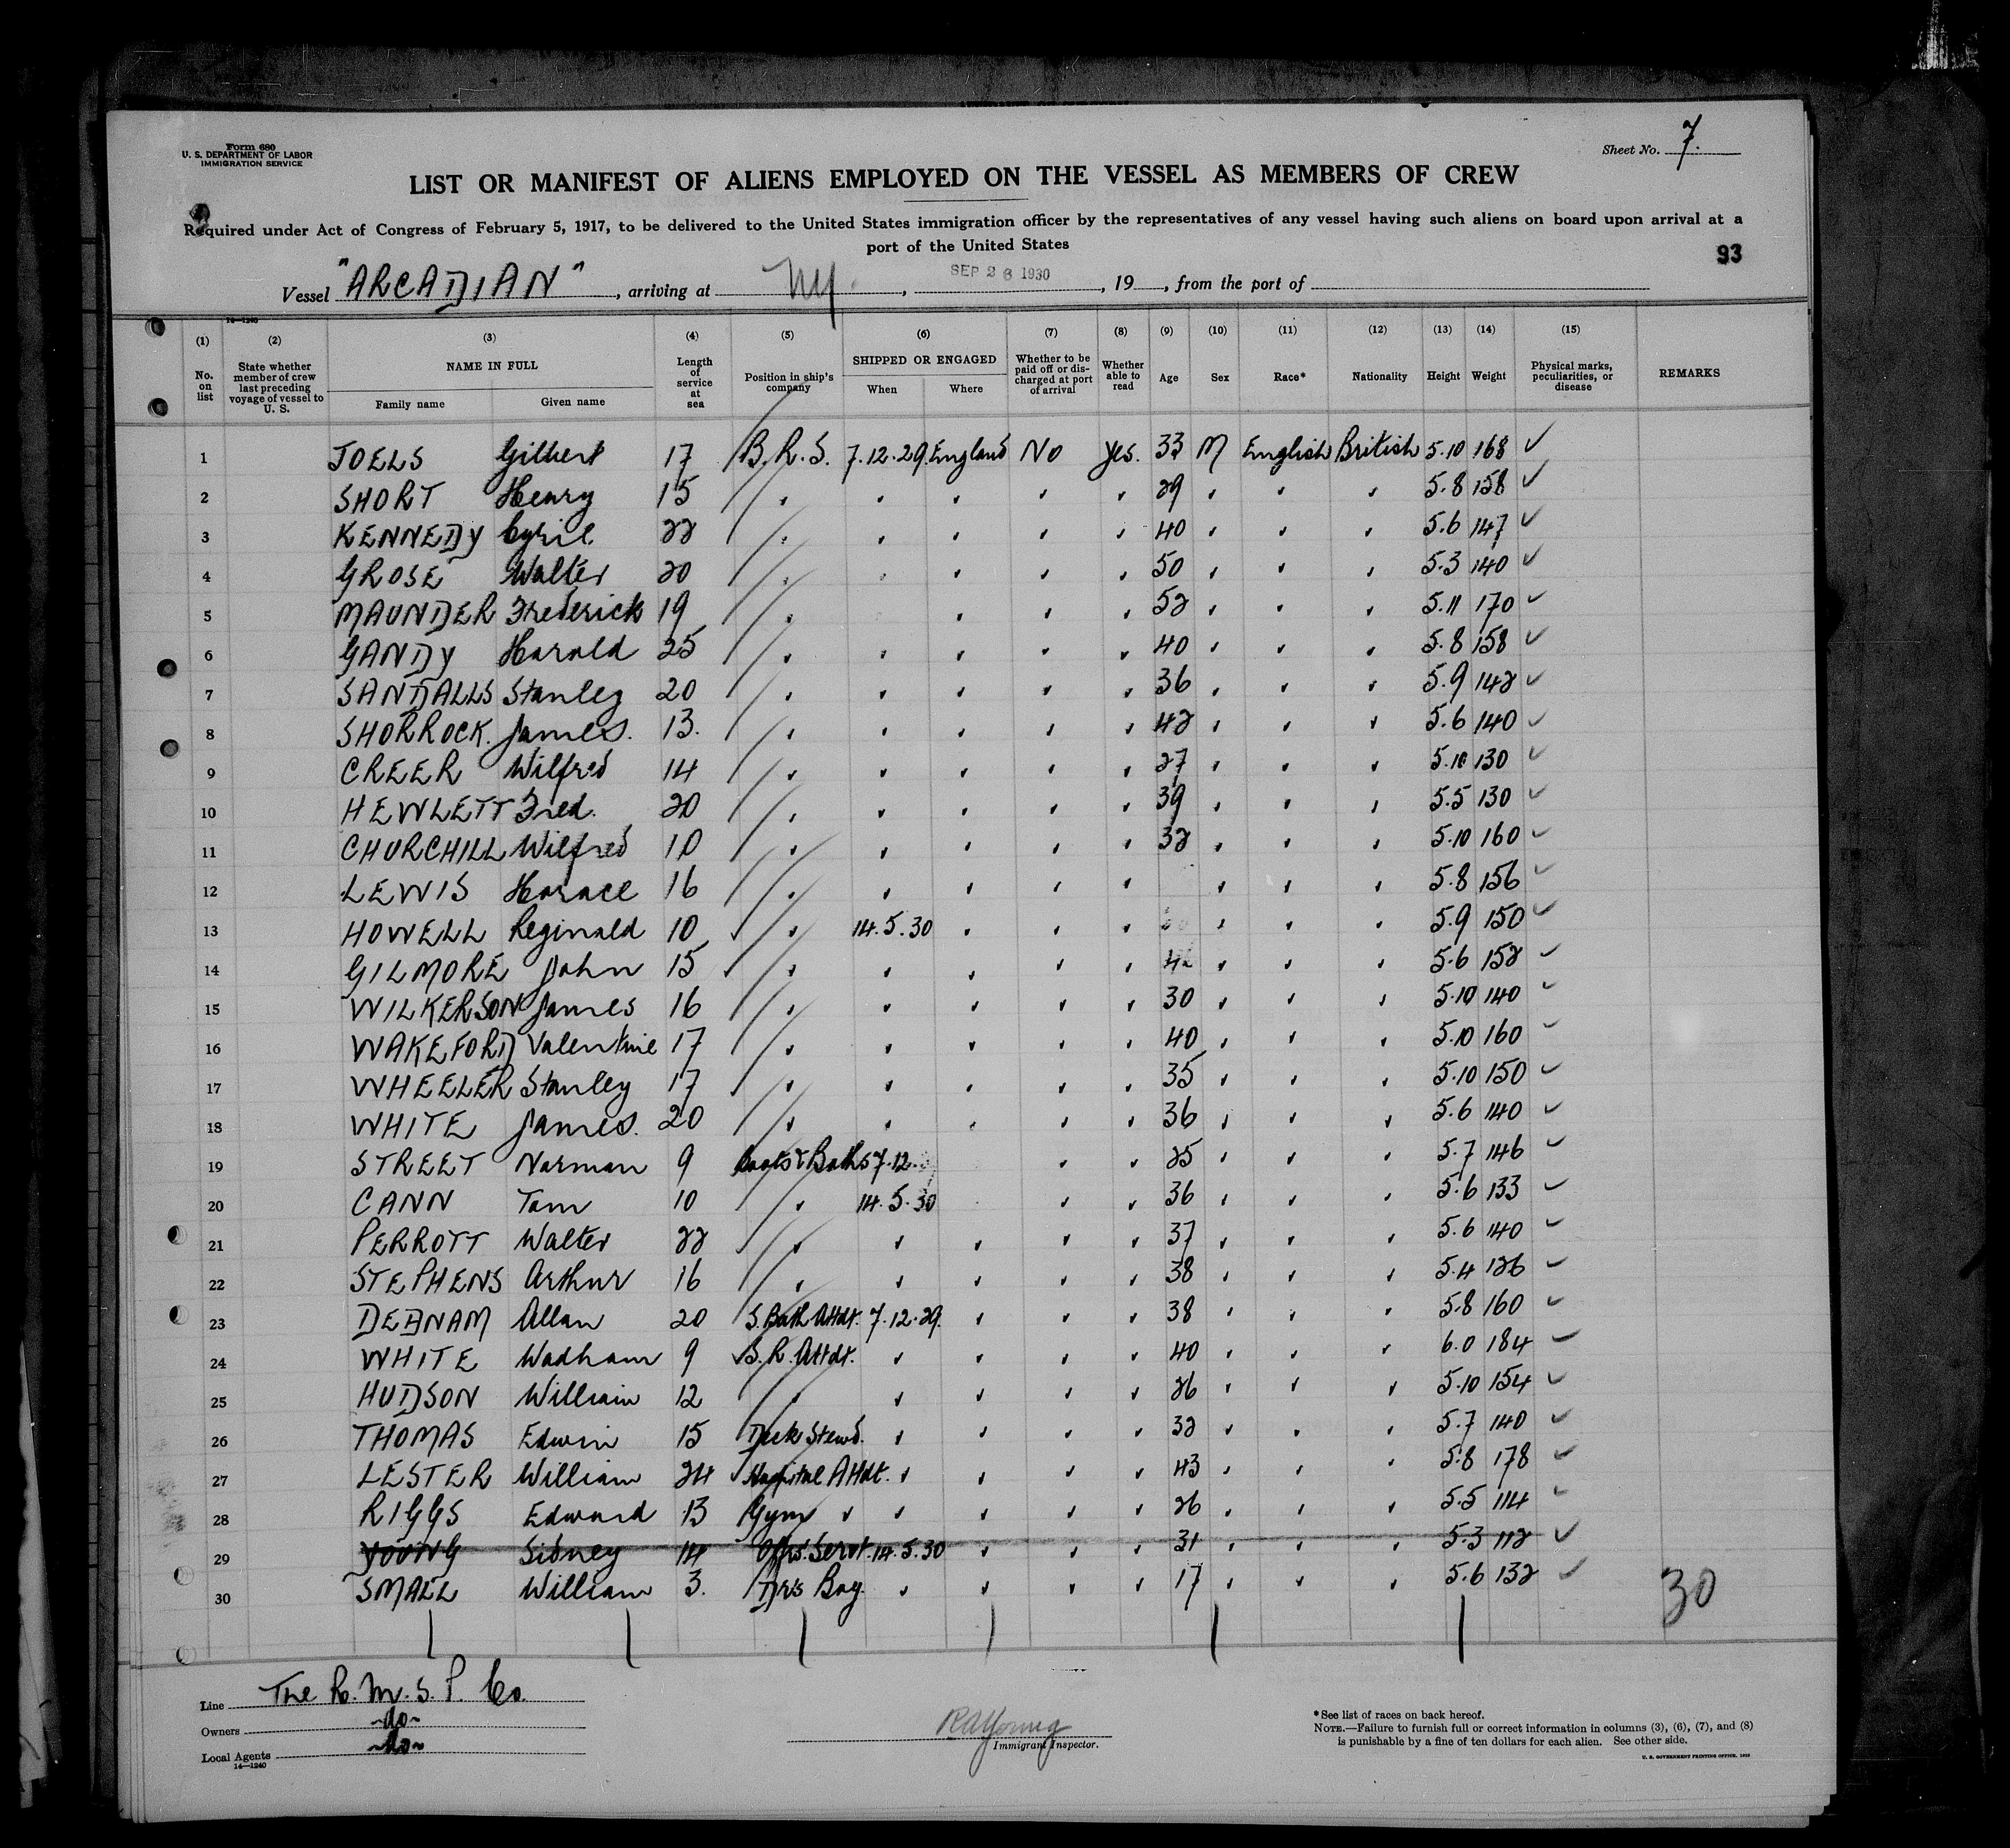 Form 680
U. S. DEPARTMENT OF LABOR
IMMIGRATION SERVICE
Sheet No. 7.
LIST OR MANIFEST OF ALIENS EMPLOYED ON THE VESSEL AS MEMBERS OF CREW
Required under Act of Congress of February 5, 1917, to be delivered to the United States immigration officer by the representatives of any vessel having such aliens on board upon arrival at a
port of the United States
93
Vessel "ARCADIAN", arriving at NY, SEP 26 1930, 19, from the port of
14—1240
(1) (2) (3) (4) (5) (6) (7) (8) (9) (10) (11) (12) (13) (14) (15)
No. on list | State whether member of crew last preceding voyage of vessel to U. S. | NAME IN FULL Family name Given name | Length of service at sea | Position in ship's company | SHIPPED OR ENGAGED When Where | Whether to be paid off or discharged at port of arrival | Whether able to read | Age | Sex | Race* | Nationality | Height | Weight | Physical marks, peculiarities, or disease | REMARKS
1 JOELS Gilbert 17 B.R.S. 7.12.29. England No Yes. 33 M English British 5.10 168 ✓
2 SHORT Henry 15 29 5.8 158 ✓
3 KENNEDY Cyril 22 40 5.6 147 ✓
4 GROSE Walter 20 50 5.3 140 ✓
5 MAUNDER Frederick 19 52 5.11 170 ✓
6 GANDY Harold 25 40 5.8 158 ✓
7 SANDALLS Stanley 20 36 5.9 142 ✓
8 SHORROCK. James. 13. 42 5.6 140 ✓
9 CREER Wilfred 14 27 5.10 130 ✓
10 HEWLETT Fred. 20 39 5.5 130 ✓
11 CHURCHILL Wilfred 10 32 5.10 160 ✓
12 LEWIS Horace 16 5.8 156 ✓
13 HOWELL Reginald 10 14.5.30 5.9 150 ✓
14 GILMORE John 15 5.6 152 ✓
15 WILKERSON James 16 30 5.10 140 ✓
16 WAKEFORD Valentine 17 40 5.10 160 ✓
17 WHEELER Stanley 17 35 5.10 150 ✓
18 WHITE James. 20 36 5.6 140 ✓
19 STREET Norman 9 Boots & Baths 7.12. 25 5.7 146 ✓
20 CANN Tom 10 14.5.30 36 5.6 133 ✓
21 PERROTT Walter 22 37 5.6 140 ✓
22 STEPHENS Arthur 16 38 5.4 126 ✓
23 DEBNAM Allan 20 S. Bath Attdt. 7.12.29. 38 5.8 160 ✓
24 WHITE Wadham 9 S.R. Attdt. 40 6.0 184 ✓
25 HUDSON William 12 26 5.10 154 ✓
26 THOMAS Edwin 15 Deck Stewd. 32 5.7 140 ✓
27 LESTER William 24 Hospital Attdt. 43 5.8 178 ✓
28 RIGGS Edward 13 Gym 26 5.5 114 ✓
29 YOUNG Sidney 14 Offrs. Servt. 14.5.30 31 5.3 112 ✓
30 SMALL William 3. Drs Boy. 17 5.6 132 ✓
30
Line The R.M.S.P. Co.
Owners ~do~
Local Agents ~do~
14—1240
RAYoung
Immigrant Inspector.
*See list of races on back hereof.
NOTE.—Failure to furnish full or correct information in columns (3), (6), (7), and (8)
is punishable by a fine of ten dollars for each alien. See other side.
U. S. GOVERNMENT PRINTING OFFICE